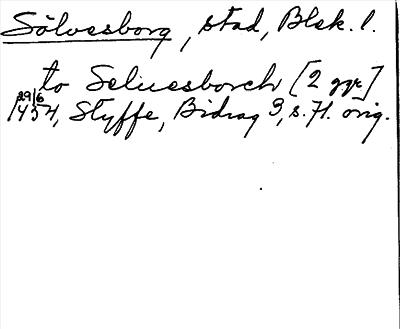 Sölvesborg, stad, Blek. l.
to Seluesborch [2 ggr]
29/6
1434, Styffe, Bidrag 3, s. 71. orig.